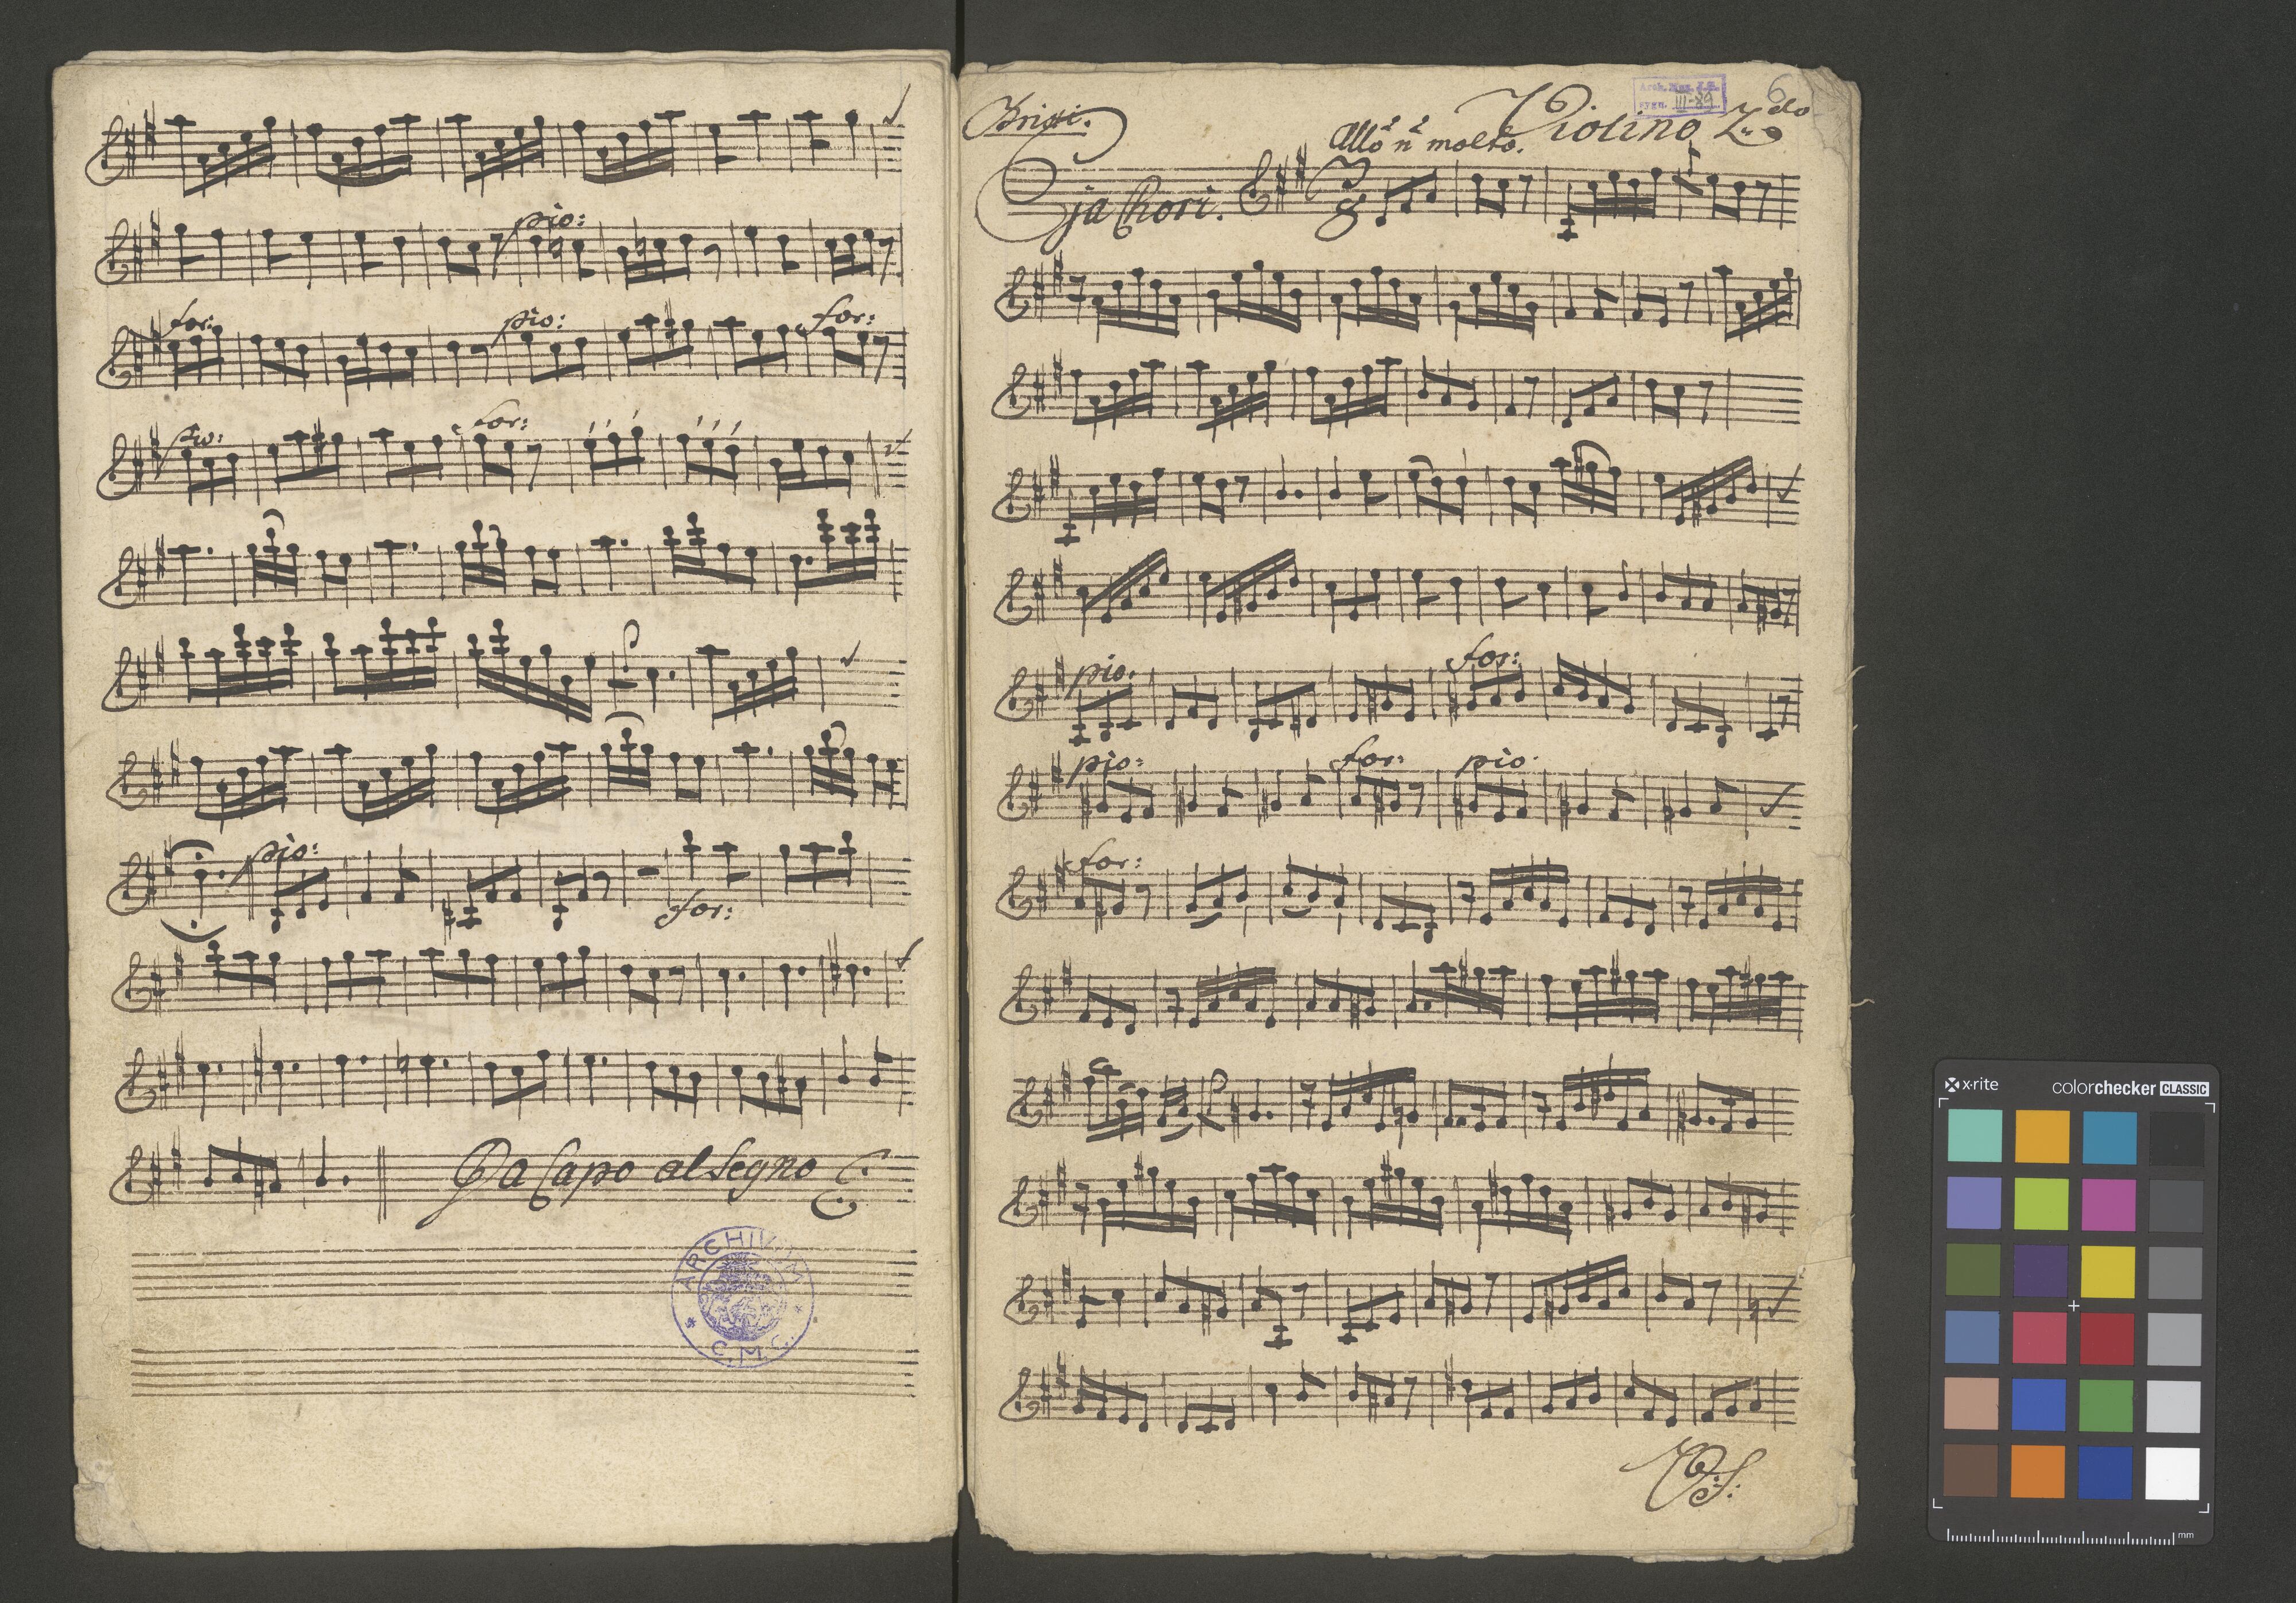 pio:
for: pio: for:
pio: for:
pio:
for:
Da Capo al Segno
ARCHIVUM
* C. M. C. *
Brixi.
Violino 2do
6
III-89
Allo n molto.
Eja Chori.
3
8
pio. for:
pio: for: pio.
for:
V: S:
x·rite colorchecker CLASSIC
mm